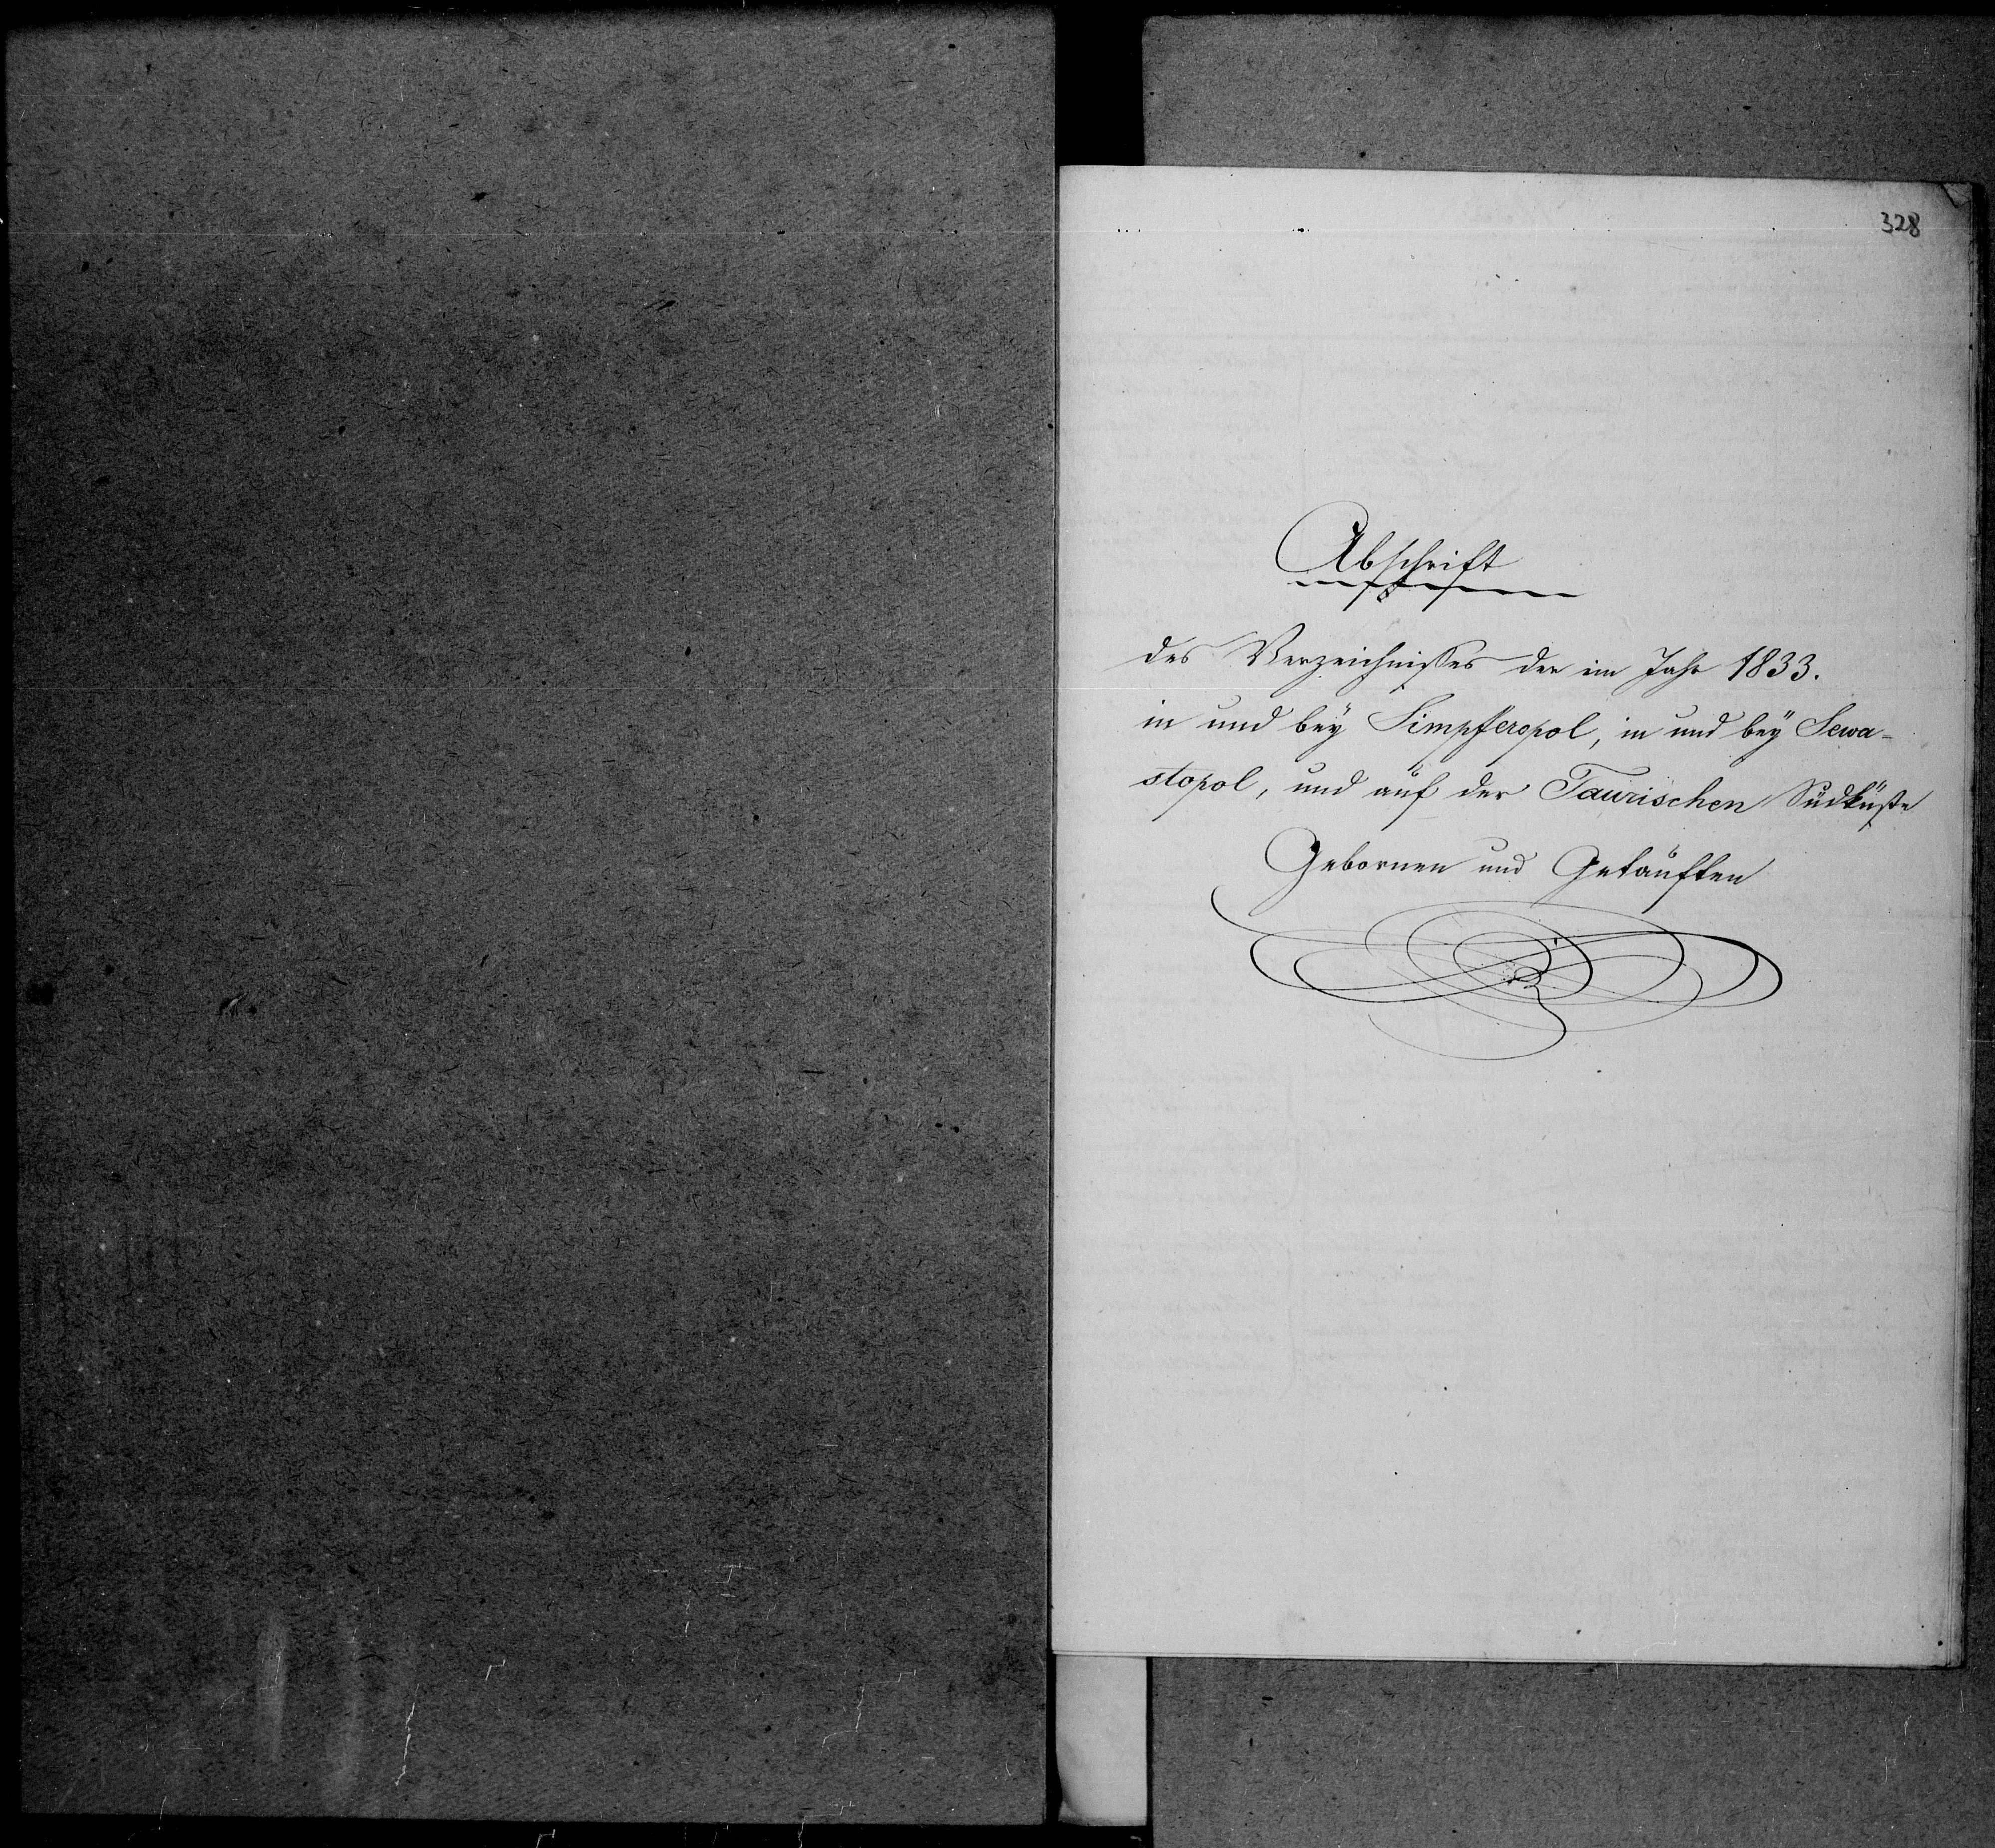 328
Abschrift
des Verzeichnißes der im Jahr 1833.
in und bey Simpferopol, in und bey Sewa-
stopol, und auf der Taurischen Südküste
Gebornen und Getauften